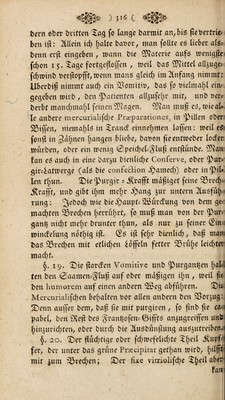 ) 316 (
dern oder dritten Tag so lange darmit an, bis sie vertrie-
ben ist: Allein ich halte davor, man sollte es lieber als-
denn erst eingeben, wann die Materie aufs wenigst-
schon 15. Tage fortgeflossen, weil das Mittel allzuge-
schwind verstopfft, wenn mans gleich im Anfang nimmt:
Uberdiß nimmt auch ein Vomitiv, das so vielmahl ein-
gegeben wird, den Patienten allzusehr mit, und ver-
derbt manchmahl seinen Magen. Man muß es, wie al-
le andere mercurialische Præparationes, in Pillen oder
Bissen, niemahls in Tranck einnehmen lassen: weil es
sonst in Zähnen hangen bliebe, davon sie entweder locker
würden, oder ein wenig Speichel-Fluß entstünde. Man
kan es auch in eine darzu dienliche Conserve, oder Pur-
gir-Latwerge (als die confection Hamech) oder in Pillen
thun. Die Purgir-Krafft mäßiget seine Brech-
Krafft, und gibt ihm mehr Hang zur untern Ausfüh-
rung: Jedoch wie die Haupt-Würckung von dem ge-
machten Brechen herrühret, so muß man von der Pur-
ganz nicht mehr drunter thun, als nur zu seiner Ein-
wickelung nöthig ist. Es ist sehr dienlich, daß man
das Brechen mit etlichen Löffeln fetter Brühe leichter
macht.
§. 19. Die starcken Vomitive und Purgantzen hal-
ten den Saamen-Fluß auf oder mäßigen ihn, weil sie
den humorem auf einen andern Weg abführen. Die
Mercurialischen behalten vor allen andern den Vorzug:
Denn ausser dem, daß sie mit purgiren, so sind sie ca-
pabel, den Rest des Frantzosen-Giffts anzugreiffen und
hinzurichten, oder durch die Ausdünstung auszutreiben.
§. 20. Der flüchtige oder schwefelichte Theil Kupf-
fer, der unter das grüne Præcipitat gethan wird, hilfft
mit zum Brechen; Der fixe vitriolische Theil aber
kan